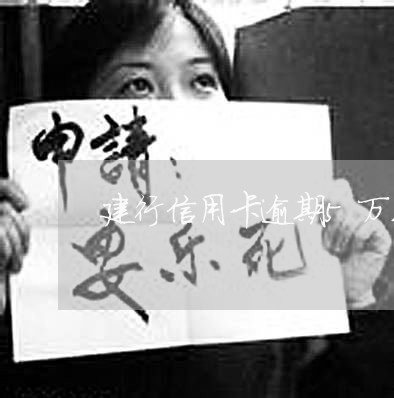 申請：
建行信用卡逾期5万
安乐死